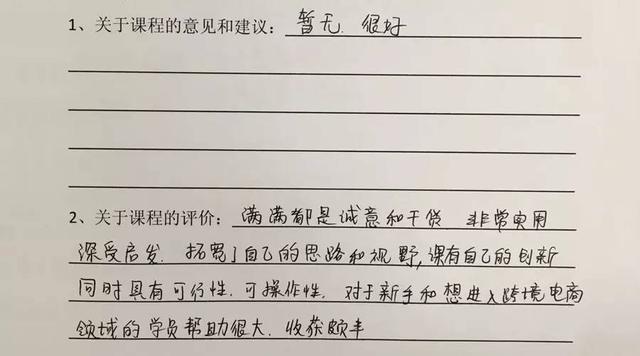 1、关于课程的意见和建议：暂无. 很好
2、关于课程的评价：满满都是诚意和干货 非常实用
深受启发. 拓宽了自己的思路和视野,课有自己的创新
同时具有可行性. 可操作性. 对于新手和想进入跨境电商
领域的学员帮助很大. 收获颇丰